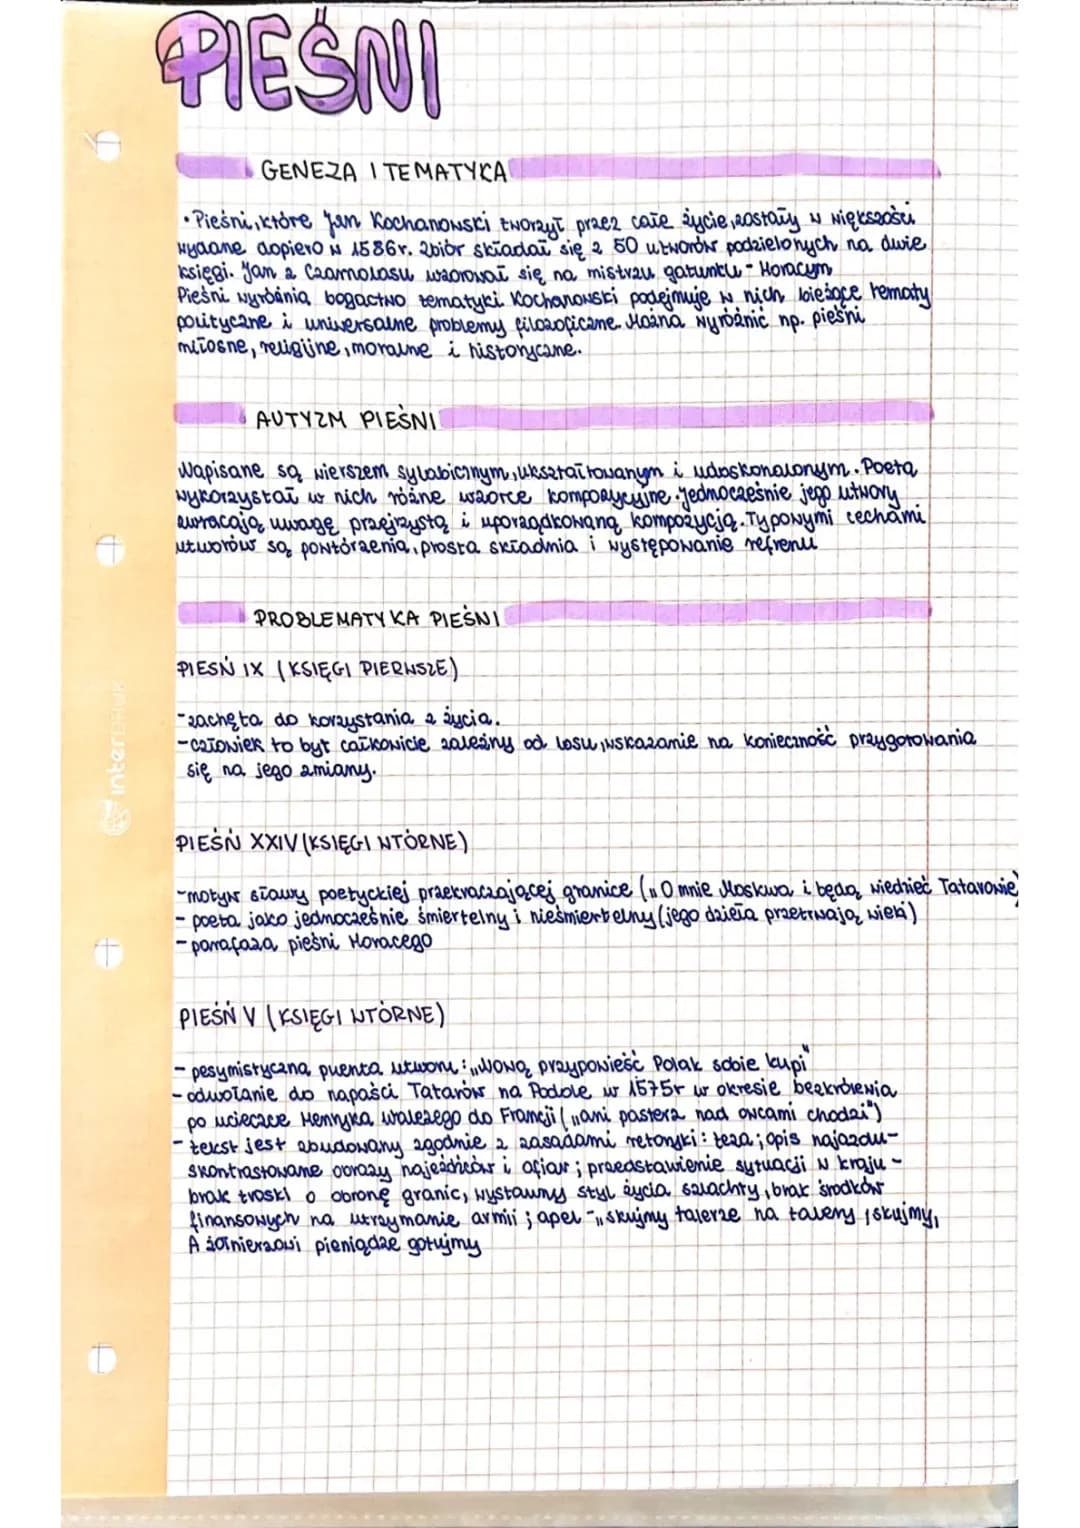 PIEŚNI
GENEZA I TEMATYKA
• Pieśni, które Jan Kochanowski tworzył przez całe życie, zostały w większości
wydane dopiero w 1586r. Zbiór składał się z 50 utworów podzielonych na dwie
księgi. Jan z Czarnolasu wzorował się na mistrzu gatunku - Horacym
Pieśni wyróżnia bogactwo tematyki Kochanowski podejmuje w nich bieżące tematy
polityczne i uniwersalne problemy filozoficzne. Można wyróżnić np. pieśni
miłosne, religijne, moralne i historyczne.
AUTYZM PIEŚNI
Napisane są wierszem sylabicznym, ukształtowanym i udoskonalonym. Poeta
wykorzystał w nich różne wzorce kompozycyjne. Jednocześnie jego utwory
zwracają uwagę przejrzystą i uporządkowaną kompozycją. Typowymi cechami
utworów są powtórzenia, prosta składnia i występowanie refrenu
PROBLEMATYKA PIEŚNI
PIEŚŃ IX (KSIĘGI PIERWSZE)
-zachęta do korzystania z życia.
-człowiek to byt całkowicie zależny od losu, wskazanie na konieczność przygotowania
się na jego zmiany.
PIEŚŃ XXIV (KSIĘGI WTÓRNE)
-motyw sławy poetyckiej przekraczającej granice („O mnie Moskwa i będą wiedzieć Tatarowie)
- poeta jako jednocześnie śmiertelny i nieśmiertelny (jego dzieła przetrwają wieki)
- parafaza pieśni Horacego
interDRUK
PIEŚŃ V (KSIĘGI WTÓRNE)
- pesymistyczna puenta utworu: „Nową przypowieść Polak sobie kupi"
- odwołanie do napaści Tatarów na Podole w 1575r w okresie bezkrólewia
po ucieczce Henryka Walezego do Francji („ani pasterz nad owcami chodzi")
- tekst jest zbudowany zgodnie z zasadami retoryki: teza; opis najazdu-
skontrastowane obrazy najeźdźców i ofiar; przedstawienie sytuacji w kraju -
brak troski o obronę granic, wystawny styl życia szlachty, brak środków
finansowych na utrzymanie armii; apel -„skujmy talerze na talery, skujmy,
A żołnierzowi pieniądze gotujmy